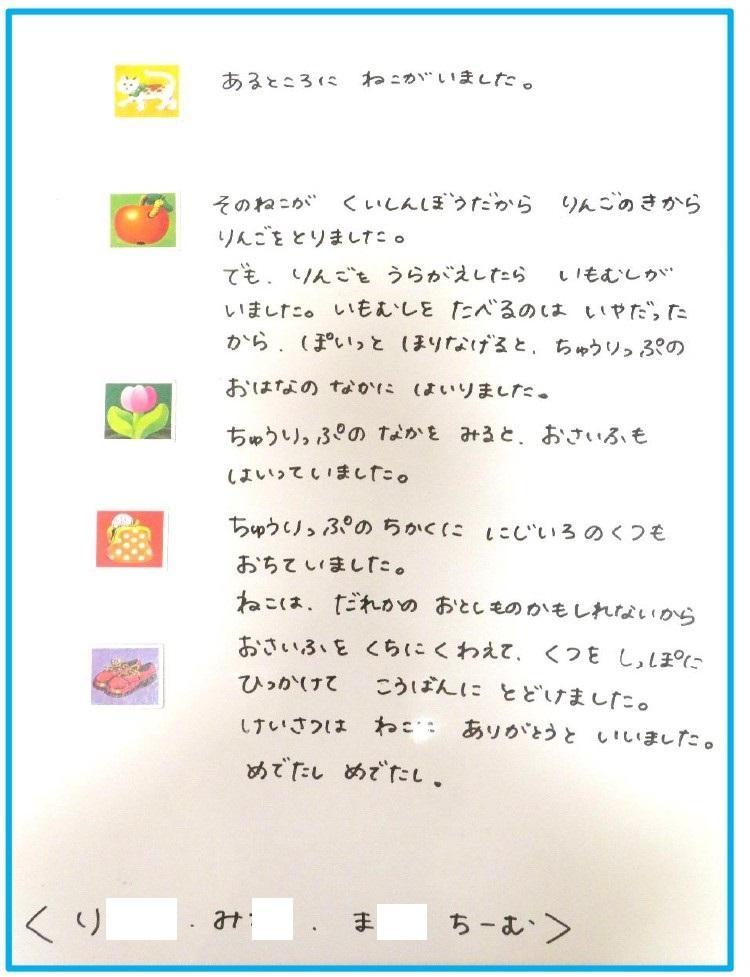 あるところに ねこがいました。
そのねこが くいしんぼうだから りんごのきから
りんごをとりました。
でも、りんごを うらがえしたら いもむしが
いました。いもむしを たべるのは いやだった
から、ぽいっと ほりなげると、ちゅうりっぷの
おはなの なかに はいりました。
ちゅうりっぷの なかを みると、おさいふも
はいっていました。
ちゅうりっぷの ちかくに にじいろのくつも
おちていました。
ねこは、だれかの おとしものかもしれないから
おさいふを くちにくわえて、くつを しっぽに
ひっかけて こうばんに とどけました。
けいさつは ねこに ありがとうと いいました。
めでたし めでたし。
＜ り . み . ま ちーむ ＞